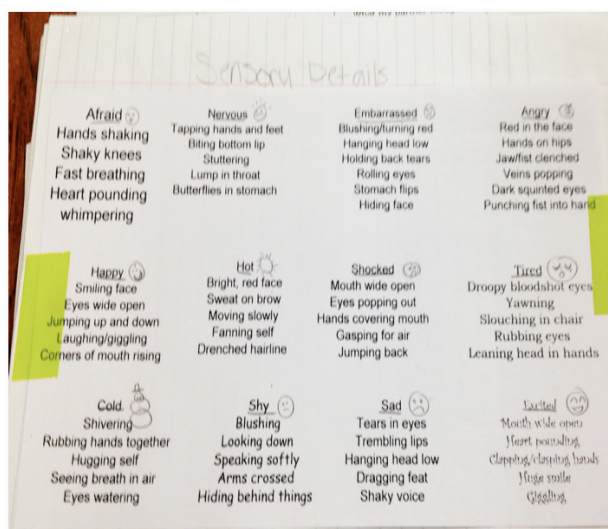 Sensory Details
Afraid
Hands shaking
Shaky knees
Fast breathing
Heart pounding
whimpering
Nervous
Tapping hands and feet
Biting bottom lip
Stuttering
Lump in throat
Butterflies in stomach
Embarrassed
Blushing/turning red
Hanging head low
Holding back tears
Rolling eyes
Stomach flips
Hiding face
Angry
Red in the face
Hands on hips
Jaw/fist clenched
Veins popping
Dark squinted eyes
Punching fist into hand
Happy
Smiling face
Eyes wide open
Jumping up and down
Laughing/giggling
Corners of mouth rising
Hot
Bright, red face
Sweat on brow
Moving slowly
Fanning self
Drenched hairline
Shocked
Mouth wide open
Eyes popping out
Hands covering mouth
Gasping for air
Jumping back
Tired
Droopy bloodshot eyes
Yawning
Slouching in chair
Rubbing eyes
Leaning head in hands
Cold
Shivering
Rubbing hands together
Hugging self
Seeing breath in air
Eyes watering
Shy
Blushing
Looking down
Speaking softly
Arms crossed
Hiding behind things
Sad
Tears in eyes
Trembling lips
Hanging head low
Dragging feat
Shaky voice
Excited
Mouth wide open
Heart pounding
Clapping/clasping hands
Huge smile
Giggling